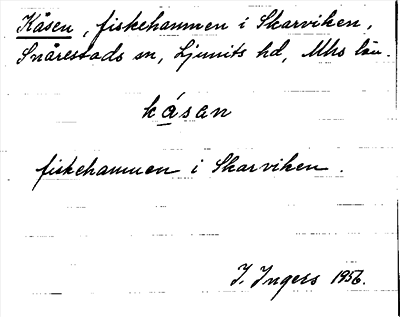 Kåsen, fiskehamnen i Skarviken,
Snårestads sn, Ljunits hd, Mhs län.
kåsan
fiskehamnen i Skarviken.
I. Ingers 1956.